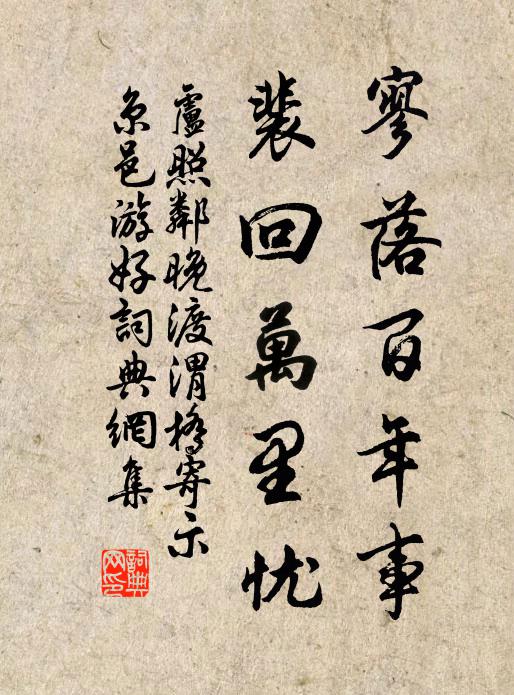 寥落百年事
裴回萬里忧
盧照鄰晚渡渭橋寄示
京邑游好詞典網集
詞典
网印